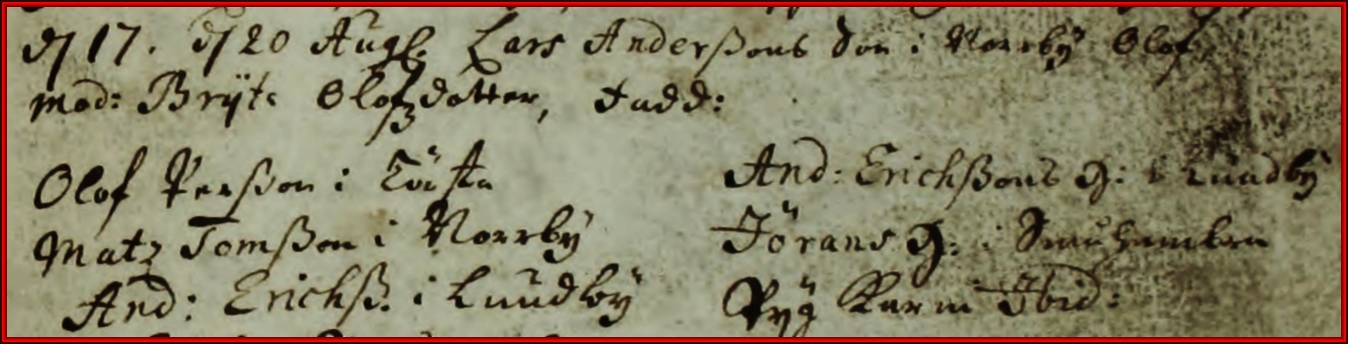 d 17. d 20 Aug. Lars Anderßons Son i Norrbÿ Olof,
mod: Brÿta Olofzdotter, Fadd:
Olof Perßon i Tösta
Matz Tomßon i Norrbÿ
And: Erichß. i Lundbÿ
And: Erichßons H: i Lundbÿ
Jörans H: i
Pÿg Karin Ibid: